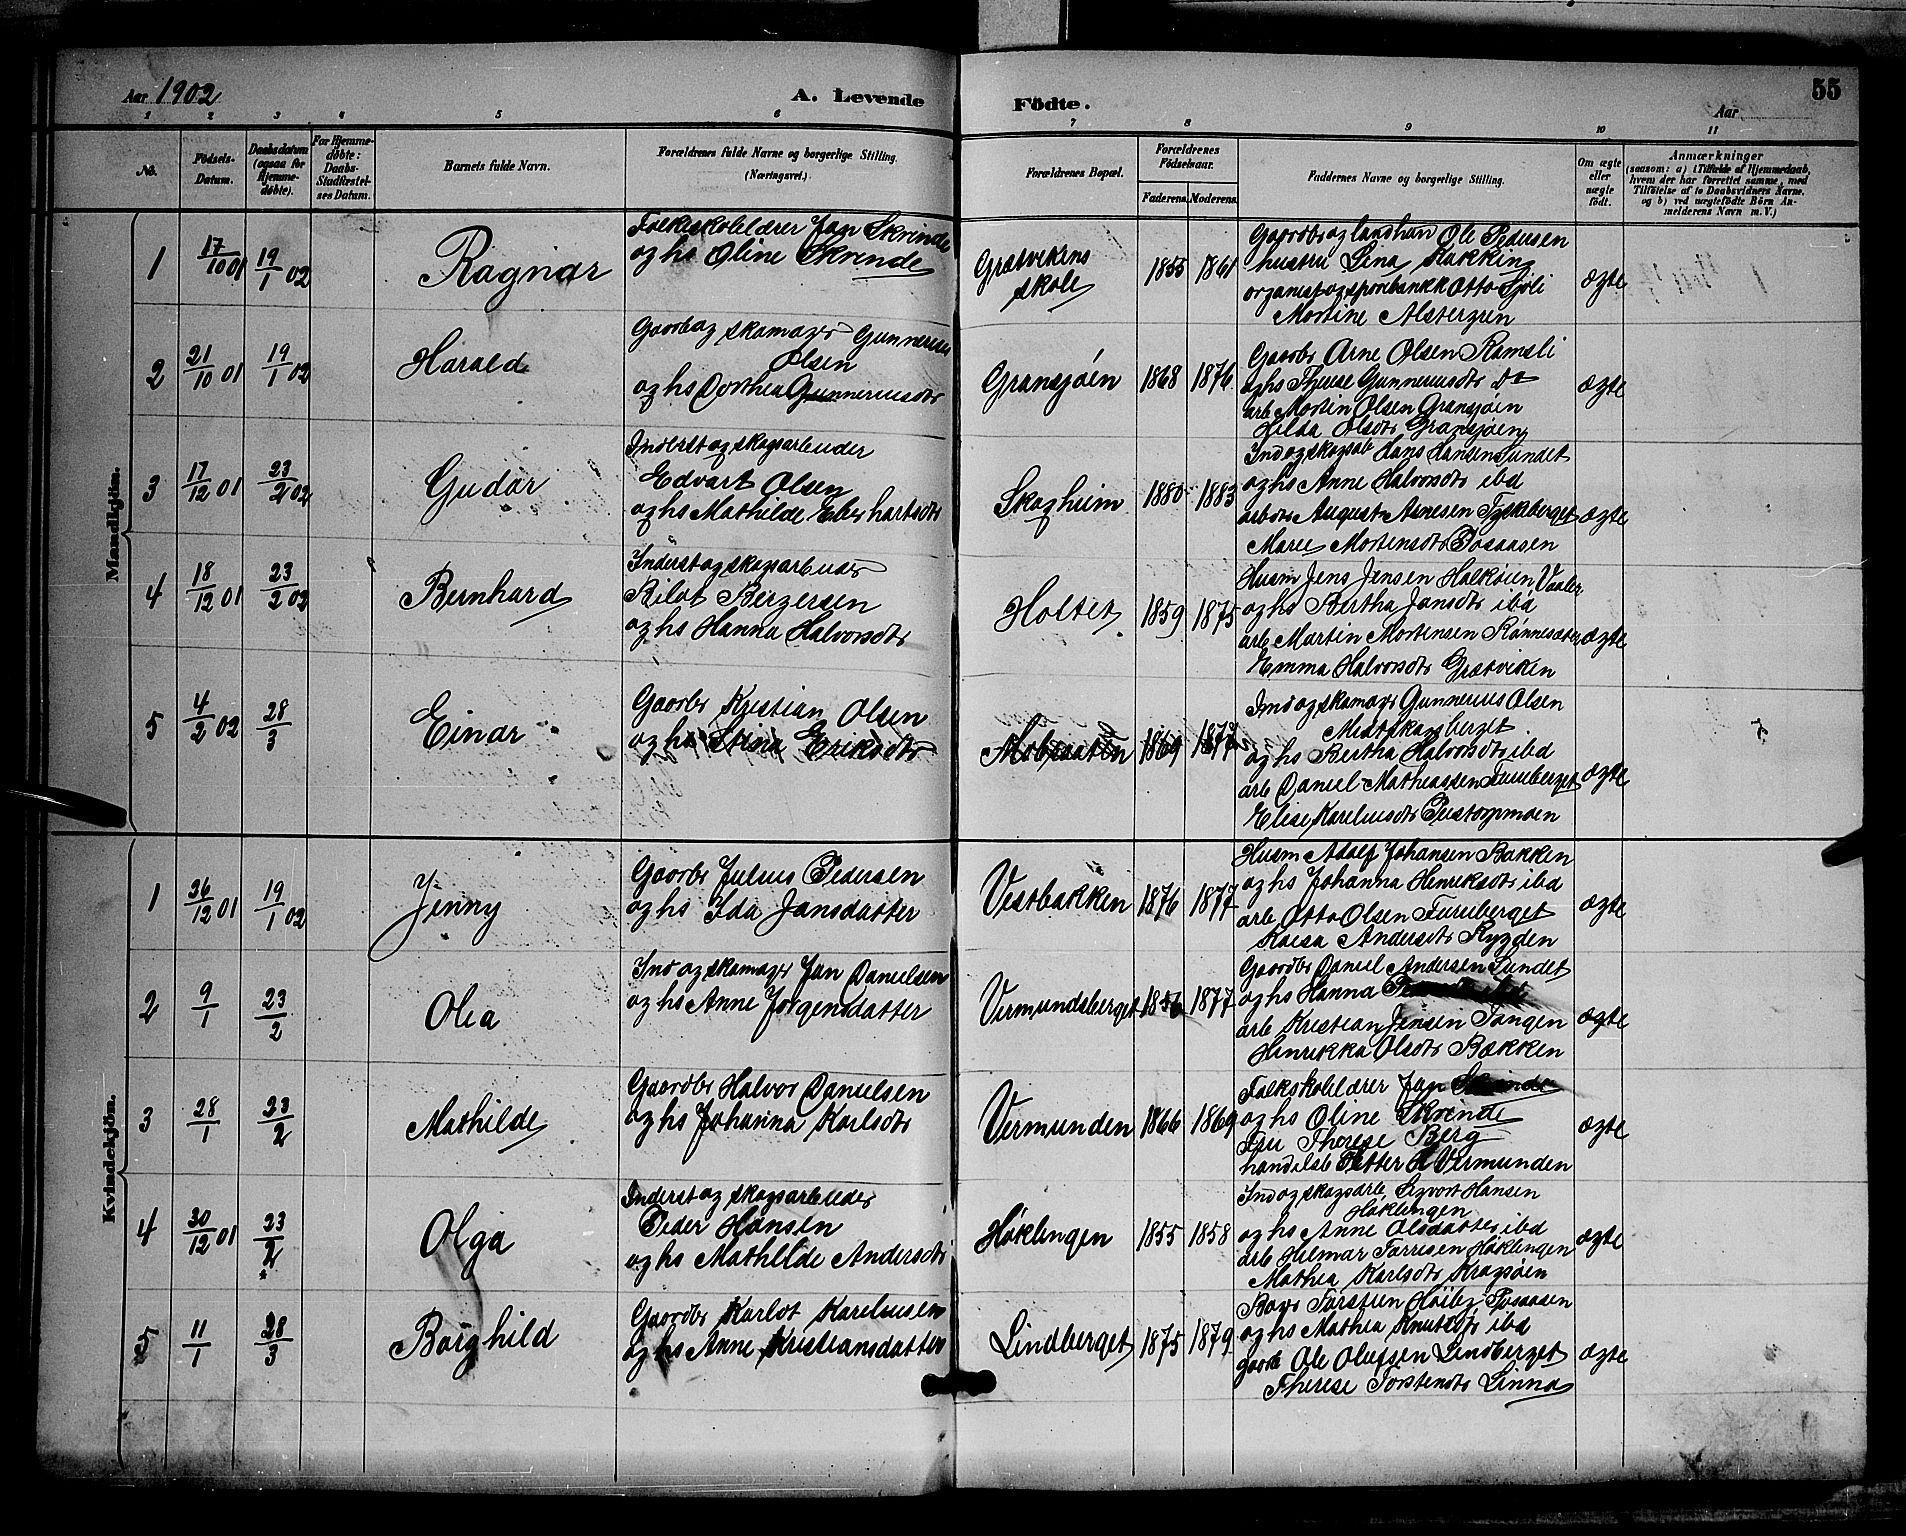 Aar 1902
A. Levende
Födte.
Aar
55
1 2 3 4 5 6 7 8 9 10 11
No.
Födsels-
Datum.
Daabsdatum
(ogsaa for
Hjemme-
döbte).
For Hjemme-
döbte:
Daabs-
Stadfæstel-
ses Datum.
Barnets fulde Navn.
Forældrenes fulde Navne og borgerlige Stilling.
(Næringsvei.)
Forældrenes Bopæl.
Forældrenes
Födselsaar.
Faderens. Moderens.
Faddernes Navne og borgerlige Stilling.
Om ægte
eller
uægte
født.
Anmærkninger
(saasom: a) i Tilfælde af Hjemmedaab,
hvem der har forrettet samme, med
Tilföielse af to Daabsvidners Navne.
og b) ved uægtefödte Börn An-
melderens Navn m. V.)
Mandkjön.
1 17/10 01 19/1 02 Ragnar
Folkeskolelærer Jan Skrinde
og hs Oline Skrinde
Græsvikens
skole
1855 1861
Gaardbr og landhan Ole Pedersen
hustru Lina Kakking
organist og sparebankk Otto Sjöli
Martine Alstergren
ægte
2 21/10 01 19/1 02 Harald
Gaardb og skomager Gunnerius
Olsen
og hs Dorthea Gunneriusdtr
Gransjøen 1868 1876
Gaardbr Arne Olsen Ramsli
og hs Therese Gunneriusdtr Do
arb Martin Olsen Gransjøen
Hilda Olsdtr Gransjøen
ægte
3 17/12 01 23/2 02 Gudar
Inderst og skogsarbeider
Edvart Olsen
og hs Mathilde Eberhartsdtr
Skogheim 1880 1883
Ind og skogsarb Hans Hansen Sundet
og hs Anne Halvorsdtr ibd
arbdr August Arnesen Tyskeberget
Marie Mortensdtr Posaasen
ægte
4 18/12 01 23/2 02 Bernhard
Inderst og skogsarbeider
Rilot Bergersen
og hs Hanna Halvorsdtr
Holtet 1859 1875
Husm Jens Jensen Halkøien Vaaler
og hs Bertha Jansdtr ibd
arb Martin Mortensen Rönnesæter
Emma Halvorsdtr Græsviken
ægte
5 4/2 02 28/3 Einar
Gaardbr Kristian Olsen
og hs Eriksdtr
1869 1877
Ind og skomager Gunnerius Olsen
Midtskogberget
og hs Bertha Halvorsdtr ibd
arb Daniel Mathiassen Furuberget
Elise Kareliusdtr
ægte
Kvindekjön.
1 26/12 01 19/1 02 Jenny
Gaardbr Julius Pedersen
og hs Ida Jansdatter
Vestbakken 1876 1877
Husm Adolf Johansen Bakken
og hs Johanna Henriksdtr ibd
arb Otto Olsen Furuberget
Kaisa Andersdtr Rygden
ægte
2 9/1 23/2 Olea
Ind og skomager Jan Danielsen
og hs Anne Jørgensdatter
Vermundsberget 1856 1877
Gaardbr Daniel Andersen Sundet
og hs Hanna
arb Kristian Jensen Tangen
Henrikka Olsdtr Bækken
ægte
3 28/1 23/2 Mathilde
Gaardbr Halvor Danielsen
og hs Johanna Karlsdtr
Vermunden 1866 1869
Folkskolelærer Jan Skrinde
og hs Oline Skrinde
Fru Therese Berg
handelsb Petter H Vermunden
ægte
4 30/12 01 23/2 Olga
Inderst og skogsarbeider
Peder Hansen
og hs Mathilde Andersdtr
Høklingen 1855 1858
Ind og skogsarb Sigvart Hansen
Høklingen
og hs Anne Olsdatter ibd
arb Helmar Torresen Høklingen
Mathea Karlsdtr Kragsøen
ægte
5 11/1 28/3 Borghild
Gaardbr Karlot Kareliusen
og hs Anne Kristiansdatter
Lindberget 1875 1879
Torstein Høiby Posaasen
og hs Mathea Knutsdtr ibd
gaardb Ole Olufsen Lindberget
Therese Torstendtr Linna
ægte